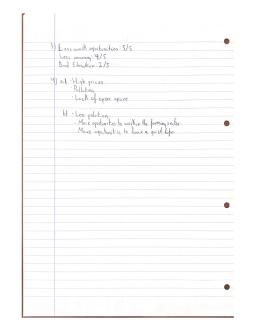 3) Less work opportunities: 5/5
Less money: 4/5
Bad Education: 2/5
4) a) - High prices
- Pollution
- Lack of open space
b) - Less pollution
- More opportunities to work in the farming sector
- More opportunities to have a good life